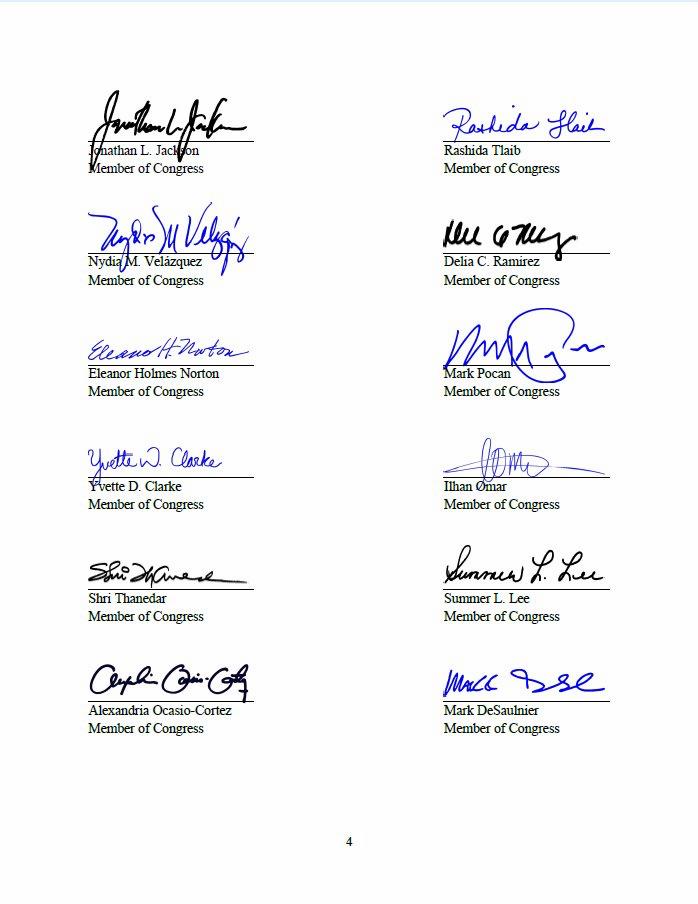 Jonathan L. Jackson
Rashida Tlaib
Jonathan L. Jackson
Rashida Tlaib
Member of Congress
Member of Congress
Nydia M Velázquez
Nydia M. Velázquez
Delia C. Ramirez
Member of Congress
Member of Congress
Eleanor H. Norton
Eleanor Holmes Norton
Mark Pocan
Member of Congress
Member of Congress
Yvette D. Clarke
Yvette D. Clarke
Ilhan Omar
Member of Congress
Member of Congress
Shri Thanedar
Summer L. Lee
Shri Thanedar
Summer L. Lee
Member of Congress
Member of Congress
Alexandria Ocasio-Cortez
Mark DeSaulnier
Member of Congress
Member of Congress
4